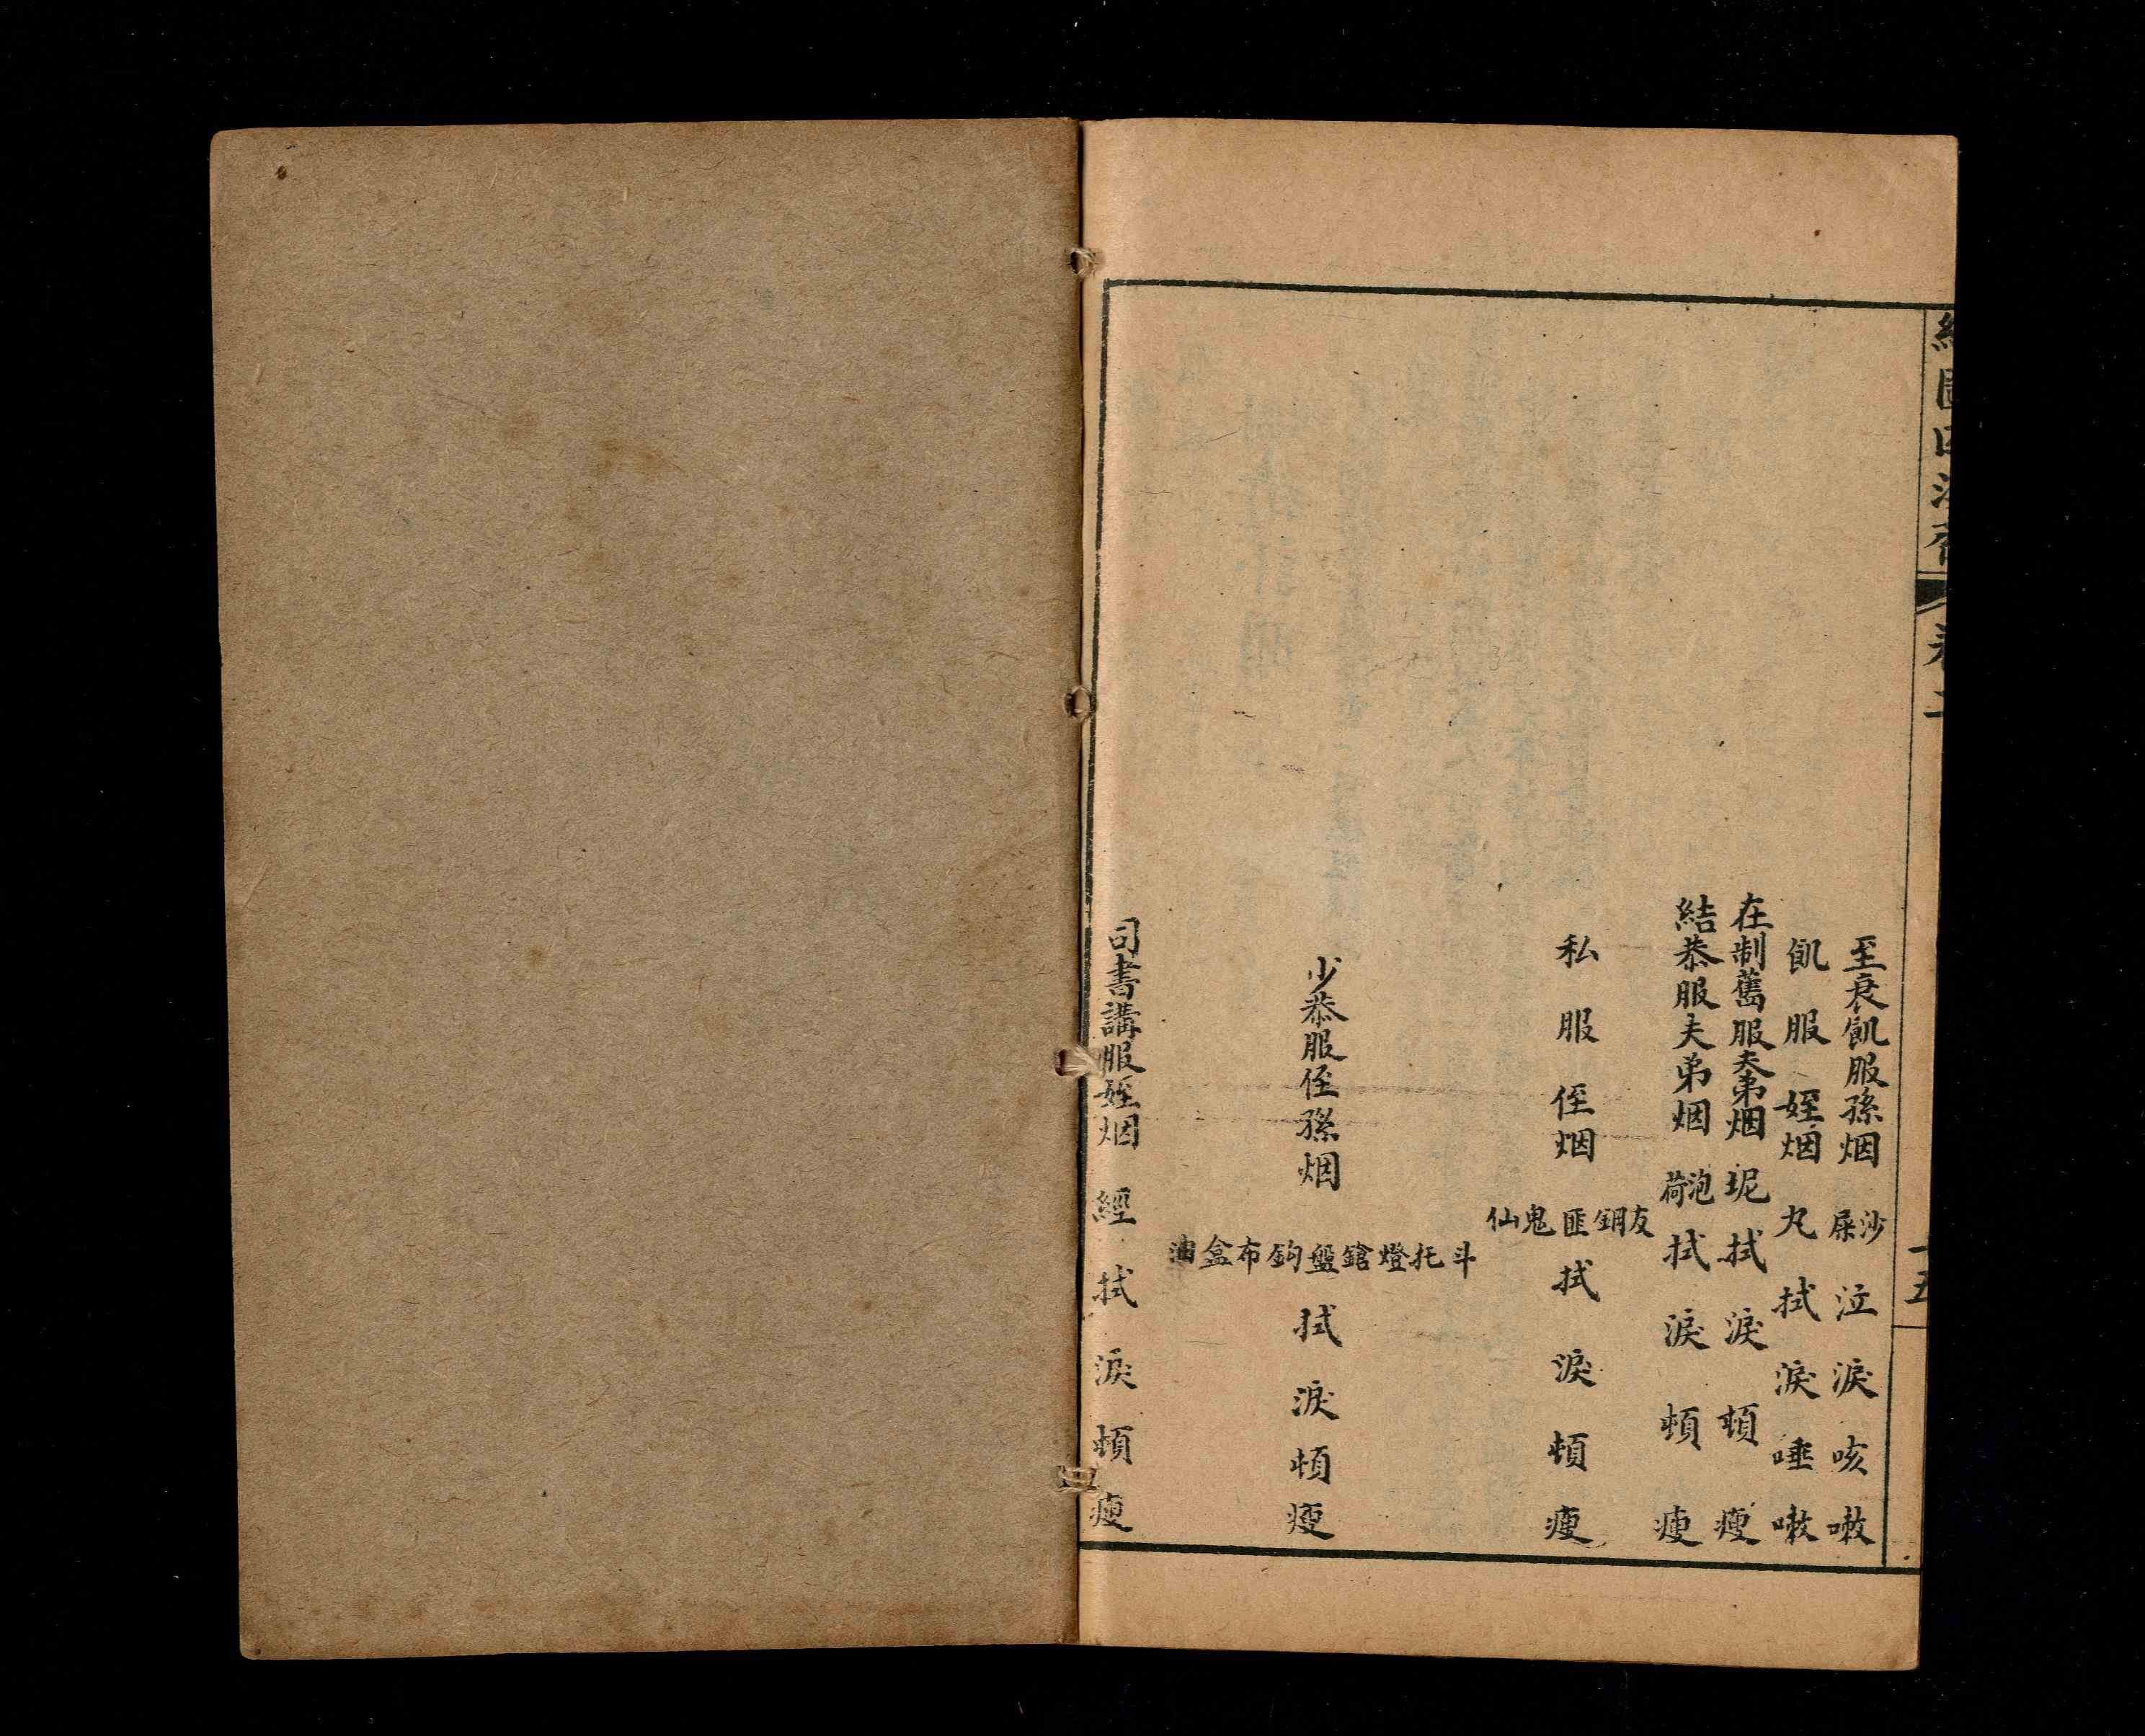 至衰飢服孫烟 沙屎 泣淚咳嗽
飢服姪烟 丸 拭淚唾嗽
在制舊服夫弟烟 坭 拭淚頓瘦
結恭服夫弟烟 泡荷 拭淚頓瘦
私服侄烟
友鋼匪鬼仙
拭淚頓瘦
少恭服侄孫烟
斗托燈鎗盤鈎布盒油
拭淚頓瘦
司書講服姪烟 經 拭淚頓瘦
十五